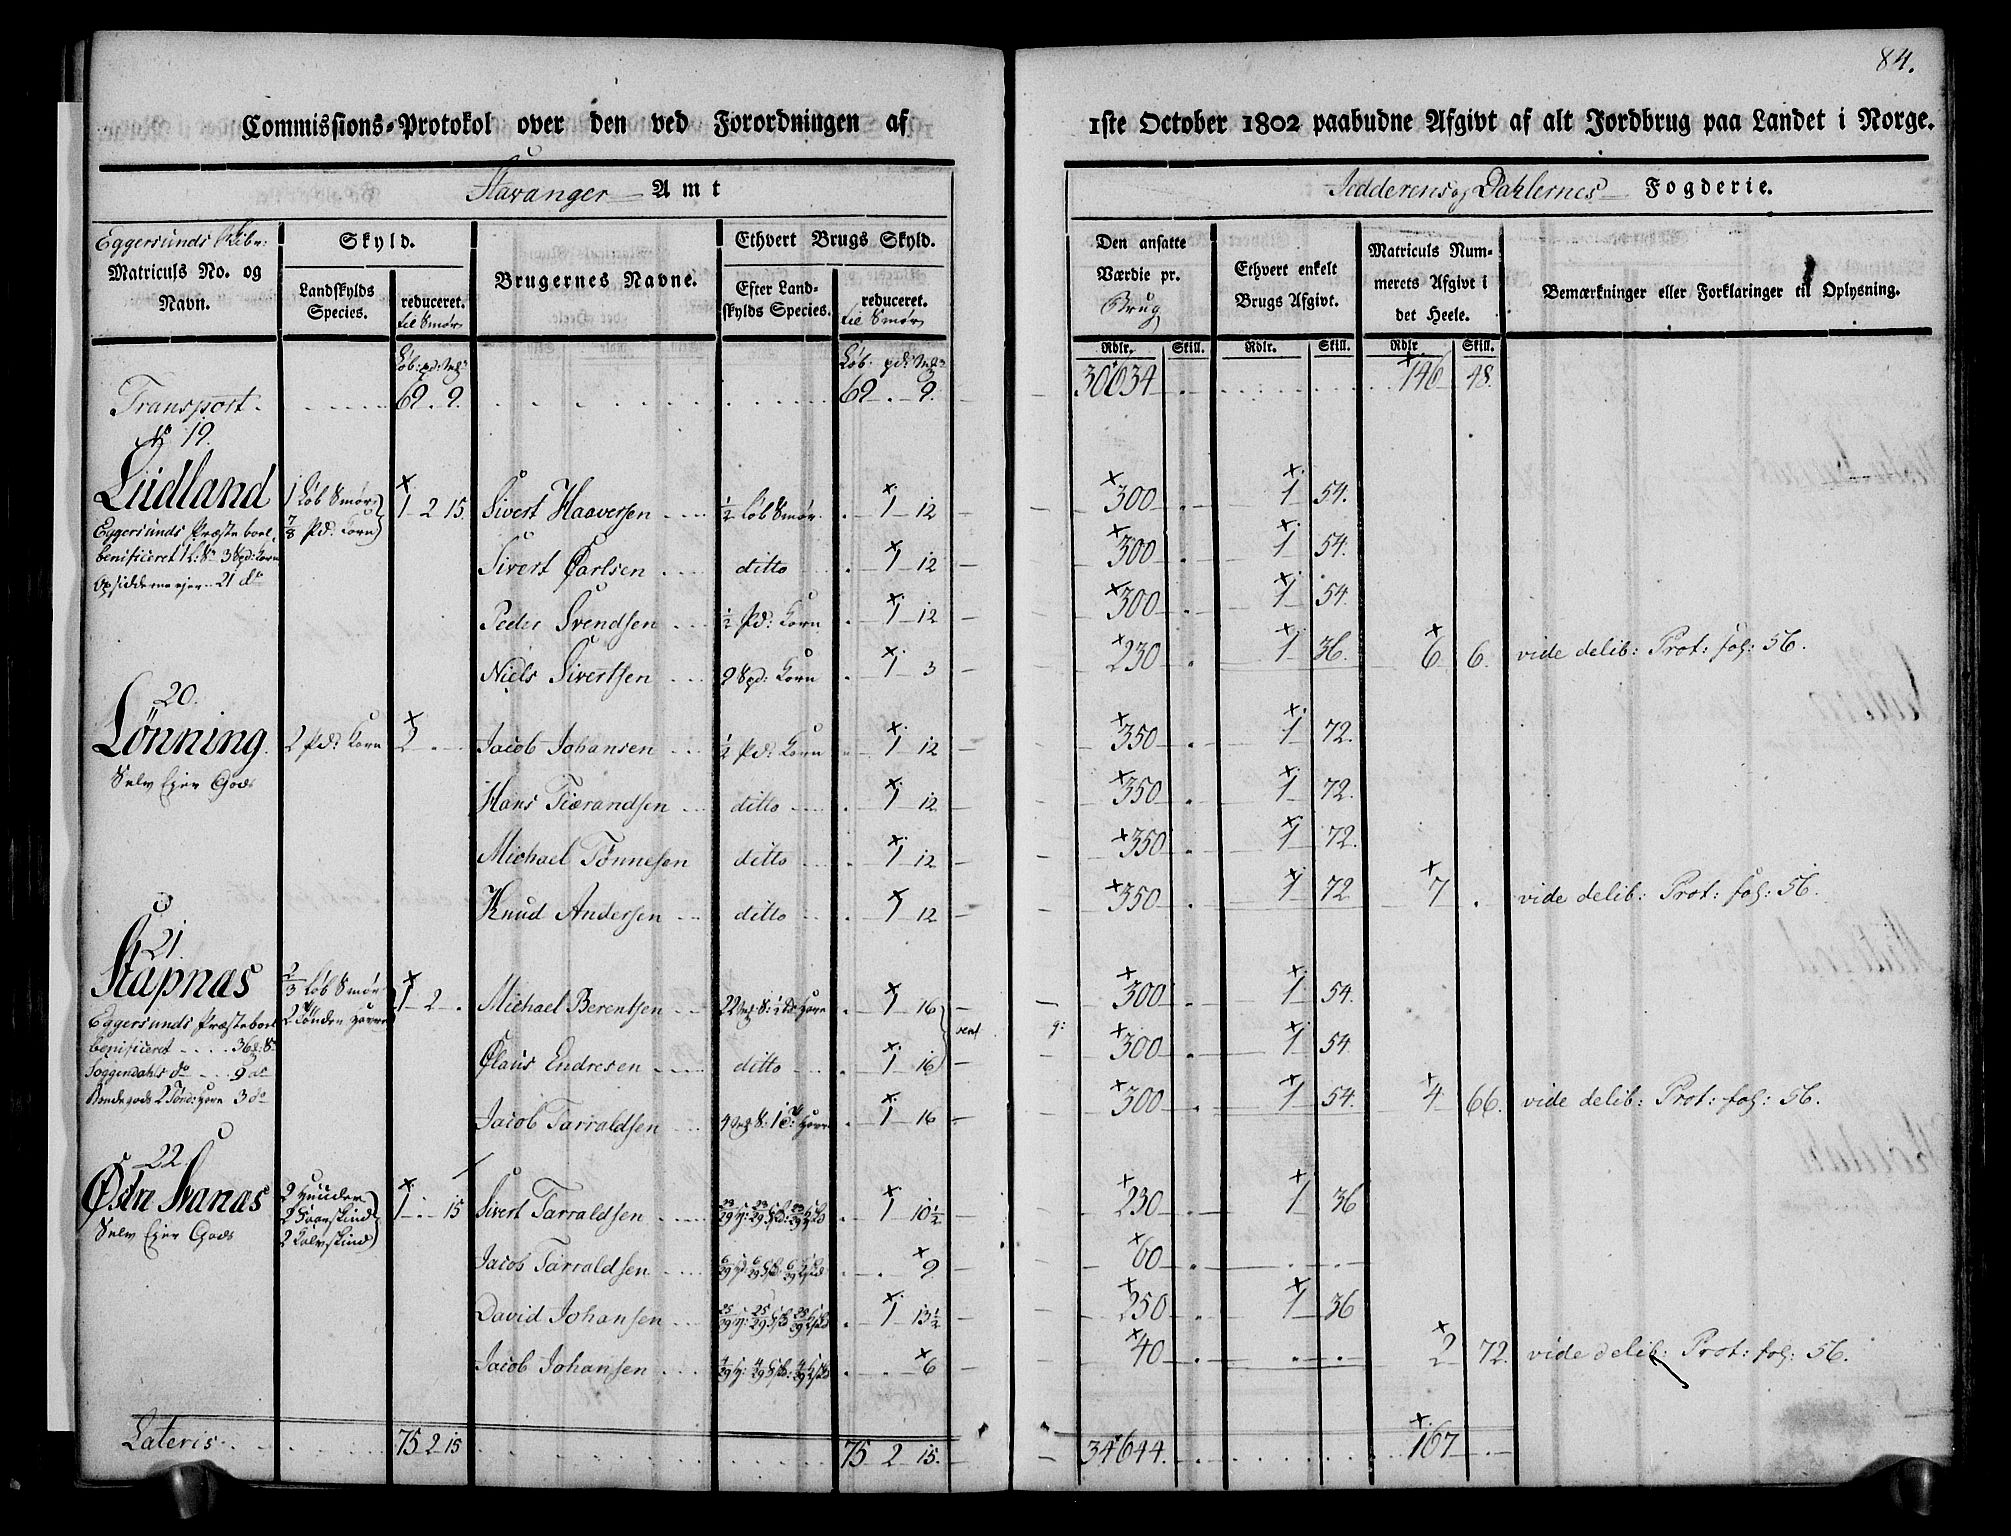 84.
Commissions-Protokol over den ved Forordningen af 1ste October 1802 paabudne Afgivt af alt Jordbrug paa Landet i Norge.
Stavanger Amt
Jedderens og Dahlernes Fogderie.
Eggersunds
Matriculs No. og Navn.
Skyld.
Landskylds Species.
reduceret. til Smør
Brugernes Navne.
Ethvert Brugs Skyld.
Efter Landskylds Species.
reduceret. til Smør
Den ansatte Værdie pr. Brug
Ethvert enkelt Brugs Afgivt.
Matriculs Nummerets Afgivt i det Heele.
Bemærkninger eller Forklaringer til Oplysning.
Rdlr. Skill. Rdlr. Skill. Rdlr. Skill.
Transport 69 . 9. 69 . 9. 30034 146 48.
No 19.
Lüdland 1 Løb Smør 1 2 15 Sivert Haaversen ½ Løb Smør 1 12 300 1 54.
Eggersunds Præsteboel 7/8 Pd: Korn
Sivert Carlsen ditto 1 12 300 1 54.
Peder Svendsen ½ Pd: Korn 1 12 300 1 54.
Niels Sivertsen 9 Spd: Korn 1 3 230 1 36. 6 6. vide delib: Prot: fol: 56.
20.
Lønning 2 Pd: Korn 2 Jacob Johansen ½ Pd: Korn 1 12 350 1 72.
Selv Ejer Gods
Hans Tiørandsen ditto 1 12 350 1 72.
Michael Tønnesen ditto 1 12 350 1 72.
Knud Andersen ditto 1 12 350 1 72 7 . vide delib: Prot: fol: 56.
21.
Stapnæs 2/3 Løb Smør 1 2 . Michael Berentsen 1 16 300 1 54.
Eggersunds Præsteboel 2 Tønder Havre
Olaus Endresen ditto 1 16 300 1 54
Soggendahls do 9 do
Jacob Tarraldsen 1 16 300 1 54. 4 66. vide delib: Prot: fol: 56.
22
Østre Svanæs 2 Huuder 1 15 Sivert Tarraldsen 1 10½ 230 1 36
2 Faarskind
Selv Ejer Gods 2 Kalvskind
Jacob Tarraldsen 9. 60
David Johansen 1 13½ 250 1 36
Jacob Johansen 6 40 2 72. vide delib: Prot: fol: 56.
Lateris 75 2 15 75 2 15. 34644 167